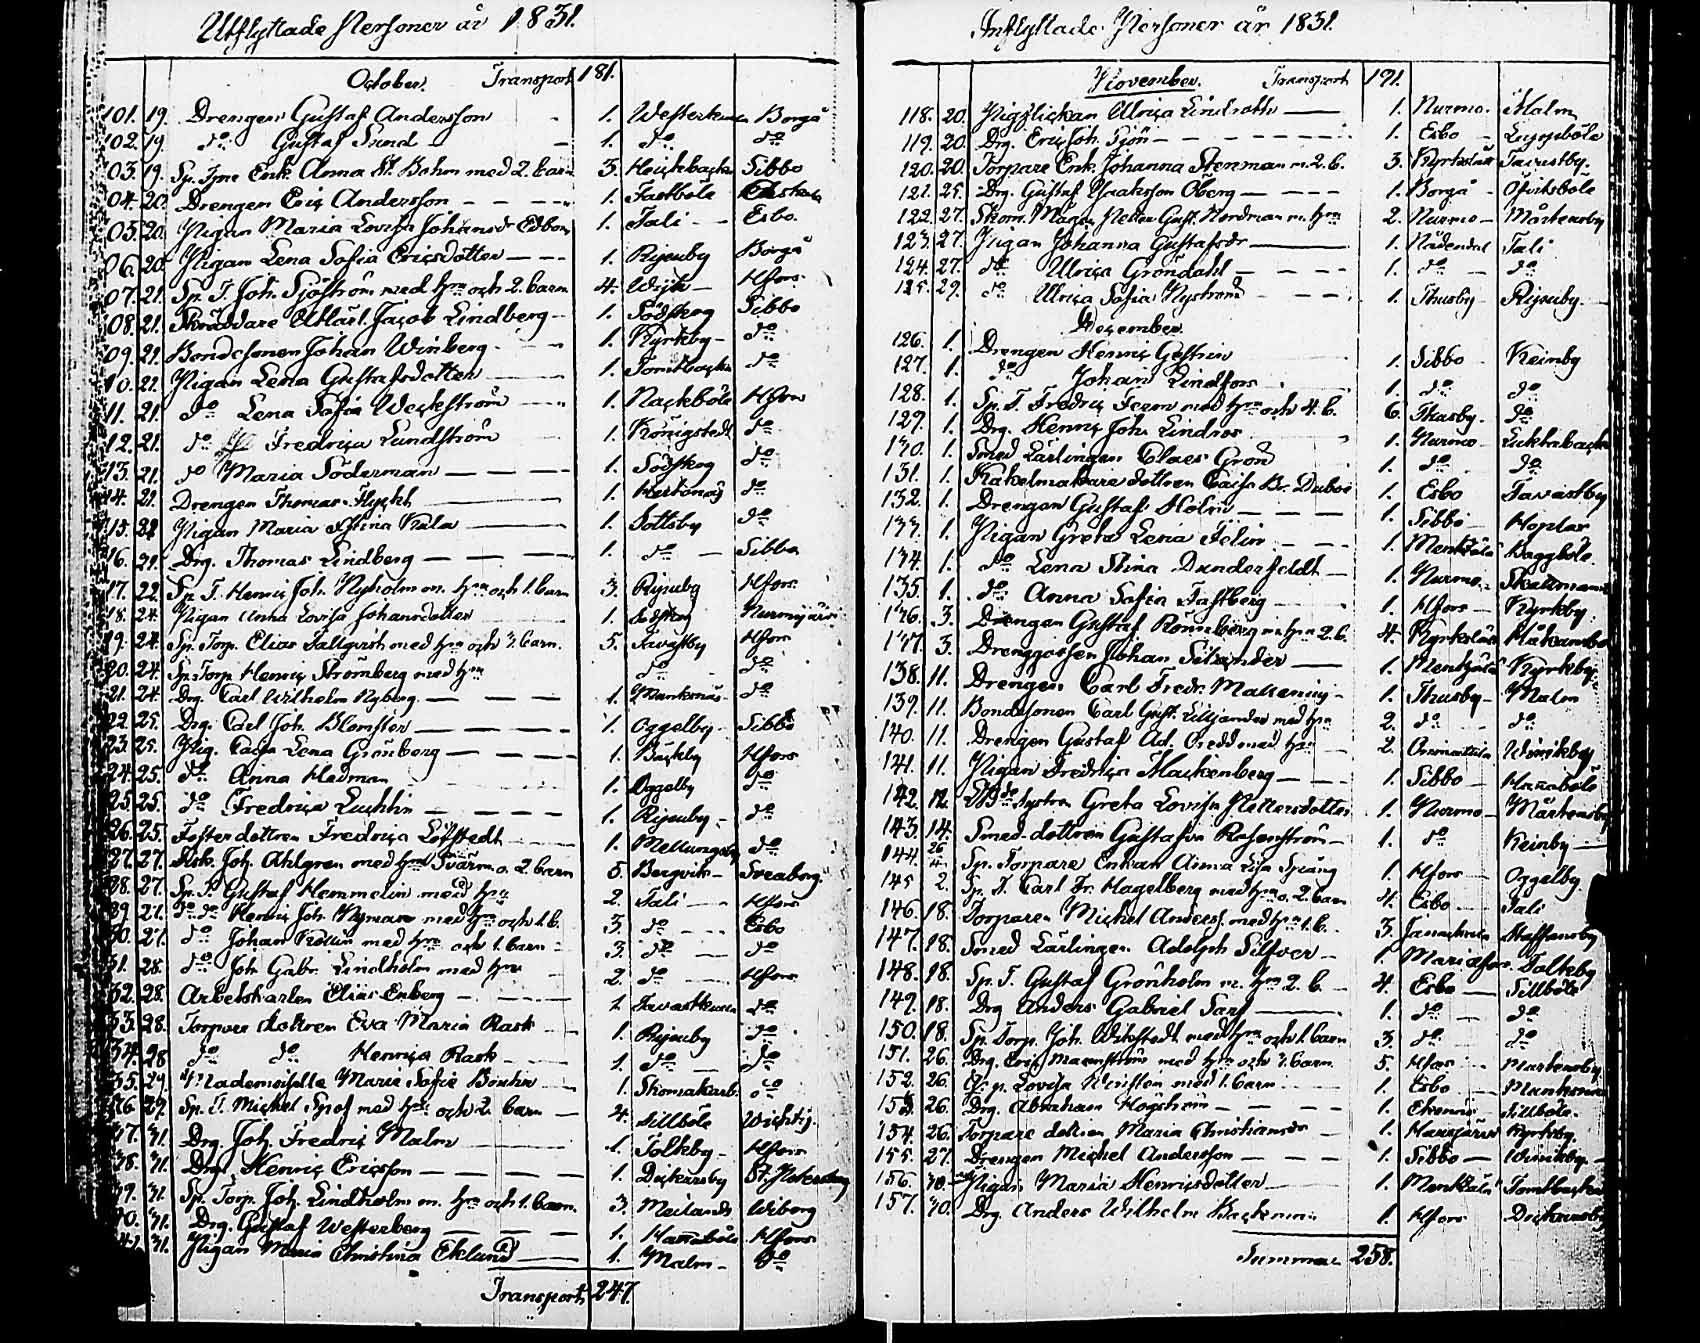 Utflyttade Personer år 1831.
October. Transport 181.
101. 19. Drengen Gustaf Andersson 1. Borgå
102. 19. do Gustaf Sund 1. do do
03. 19. Sp. Tjne Enk. Anna St. Bohm med 2. barn 3. Sibbo
04. 20. Drengen Eric Andersson 1. Fastböle
05. 20. Pigan Maria Lovisa Johansdr Edbom 1. Tali Esbo.
06. 20. Pigan Lena Sofia Ericsdotter 1. Ripuby Borgå
07. 21. Sp. T. Joh. Sjöström med hru och 2. barn 4. Wijk Hfors
08. 21. Skräddare Jacob Lindberg 1. Södskog Sibbo
09. 21. Bondesonen Johan Winberg 1. Kyrkby do
10. 21. Pigan Lena Gustafsdotter 1. Tomtbacka do
11. 21. do Lena Sofia Weckström 1. Nackböle Hfors
12. 21. do Fredrica Lundström 1. Königstedt do
13. 21. do Maria Söderman 1. Södskog do
14. 21. Drengen Thomas Flyckt 1. Hertonäs do
15. 21. Pigan Maria Stina Kula 1. Sottsby do
16. 21. Drg. Thomas Lindberg 1. do Sibbo
17. 22. Sp. T. Henric Joh. Nyholm m. hru och 1. barn 3. Ripuby Hfors
18. 24. Pigan Anna Lovisa Johansdotter 1. Södskog Nurmijärvi
19. 24. Sp. Torp. Elias Tallqvist med hru och 3. barn. 5. Tavastby Hfors
20. 24. Sp. Torp. Henric Strömberg med hru do do
21. 24. Drg. Carl Wilhelm Nyberg 1. Munksnäs do
22. 25. Drg. Carl Joh. Blomster 1. Oggelby Sibbo
23. 25. Pig. Caisa Lena Grönberg 1. Backby Hfors
24. 25. do Anna Hedman 1. Oggelby do
25. 25. do Fredrica Luchtin 1. Ripuby do
26. 25. Fosterdottren Fredrica Löfstedt 1. Mellungsby do
27. 27. Joh. Ahlgren med hru Svärm. o. 2. barn 5. Bergvik Sveaborg.
28. 27. Sp. T. Gustaf Hemmelin med hru 2. Tali Hfors
29. 27. do do Henric Joh. Nyman med hru och 1. b. 3. do Esbo
30. 27. do Johan Kollin med hru och 1. barn 3. do do
31. 28. do Joh. Gabr. Lindholm med hru 2. do Hfors
32. 28. Arbetskarlen Elias Enberg 1. do
33. 28. Torpare dottren Eva Maria Rask 1. Ripuby do
34. 28 do do Henrica Rask 1. do do
35. 29. Mademoiselle Maria Sofia 1. Skomakarb. do
36. 29. Sp. T. Michel Spof med hru och 2. barn 4. Sillböle Wichtis.
37. 31. Drg. Joh. Fredric Malm 1. Tolkby Hfors
38. 31. Drg. Henric Ericsson 1. Dickursby St. Petersburg
39. 31. Sp. Torp. Joh. Lindholm m. hru och 1. barn. 3. Meilands Wiborg
40. 31. Drg. Gustaf Westerberg 1. Hannböle Hfors
41. 31. Pigan Maria Christina Eklund 1. Malm do
Transport 247.
Inflyttade Personer år 1831.
November. Transport 191.
118. 20. Pigflickan Ulrica Lindroth 1. Nurmo Malm
119. 20. Drg. Eric Joh. Sjön 1. Esbo
120. 20. Torpare Enk. Johanna Stenman m. 2. b. 3. Kyrkslätt Tavastby.
121. 25. Drg. Gustaf Isaksson Öberg 1. Borgå Öfvitsböle
122. 27. Gust. Nordman m. hru 2. Nurmo Mårtensby
123. 27. Pigan Johanna Gustafsdr 1. Nådendal Tali
124. 27. do Ulrica Gröndahl 1. do do
125. 29. do Ulrica Sofia Nyström 1. Thusby Ripuby.
December.
126. 1. Drengen Henric Gestrin 1. Sibbo Keinby
127. 1. do Johan Lindfors 1. do do
128. 1. Sp. T. Fredric med hru och 4. b. 6. Thusby do
129. 1. Drg. Henric Joh. Lindros 1. Nurmo
130. 1. Smed Lärlingen Claes Grön 1. do do
131. 1. Kakelmakare dottren Caisa Br. 1. Esbo Tavastby
132. 1. Drengen Gustaf Holm 1. Sibbo Hoplax
133. 1. Pigan Greta Lena Felin 1. Mentzälä Baggböle
134. 1. do Lena Stina Dunderfeldt 1. Nurmo
135. 1. do Anna Sofia Fastberg 1. Hfors Kyrkby
136. 3. Drengen Gustaf Rönnberg m. hru 2. b. 4. Kyrkslätt Håkansböle
137. 3. Drenggossen Johan 1. Mentzälä Kyrkby.
138. 11. Drengen Carl Fredr. 1. Thusby Malm
139. 11. Bondesonen Carl Gust. Liljander med hru 2. do do
140. 11. Drengen Gustaf Ad. med hru 2. Winikby
141. 11. Pigan Fredrica Hackenberg 1. Sibbo Hannböle
142. 12. Systra Greta Lovisa Pettersdotter 1. Nurmo Mårtensby
143. 14. Smed dottren Gustafva Rosenström 1. do Keinby
144. 26 Sp. Torpare Enkan Anna Lisa Spräng 1. Hfors Oggelby
145 2. Sp. T. Carl Fr. Hagelberg med hru o. 2. barn 4. Esbo Tali
146. 18. Torparen Michel Anderss. med hru 1. b. 3. Janackala Staffansby
147. 18. Smed Lärlingen Adolph Silfver 1. Mariefors Tolkby
148. 18. Sp. T. Gustaf Grönholm m. hru 2. b. 4. Esbo Sillböle
149. 18. Drg Anders Gabriel Sarf 1. do do
150. 18. Sp. Torp. Joh. Wikstedt med hru och 1. barn 3. do do
151. 26. Drg. Eric Malmström med hru och 3. barn 5. Hfors Mårtensby
152. 26. Q. p. Lovisa med 1. barn 1. Esbo Munksnäs
153. 26. Drg. Abraham Högström 1. Ekenäs Sillböle.
154. 26. Torpare dottren Maria Christiansdr 1. Kyrkby.
155. 27. Drengen Michel Andersson 1. Sibbo Winikby
156. 30. Pigan Maria Henricsdotter 1. Mentzälä Tomtbacka
157. 30. Drg. Anders Wilhelm Backman 1. Hfors Dickursby
Summa 258.